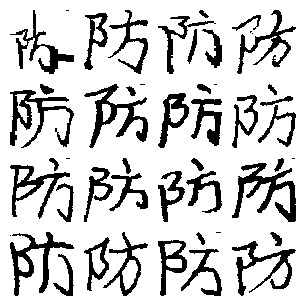 防防防防
防防防防
防防防防
防防防防